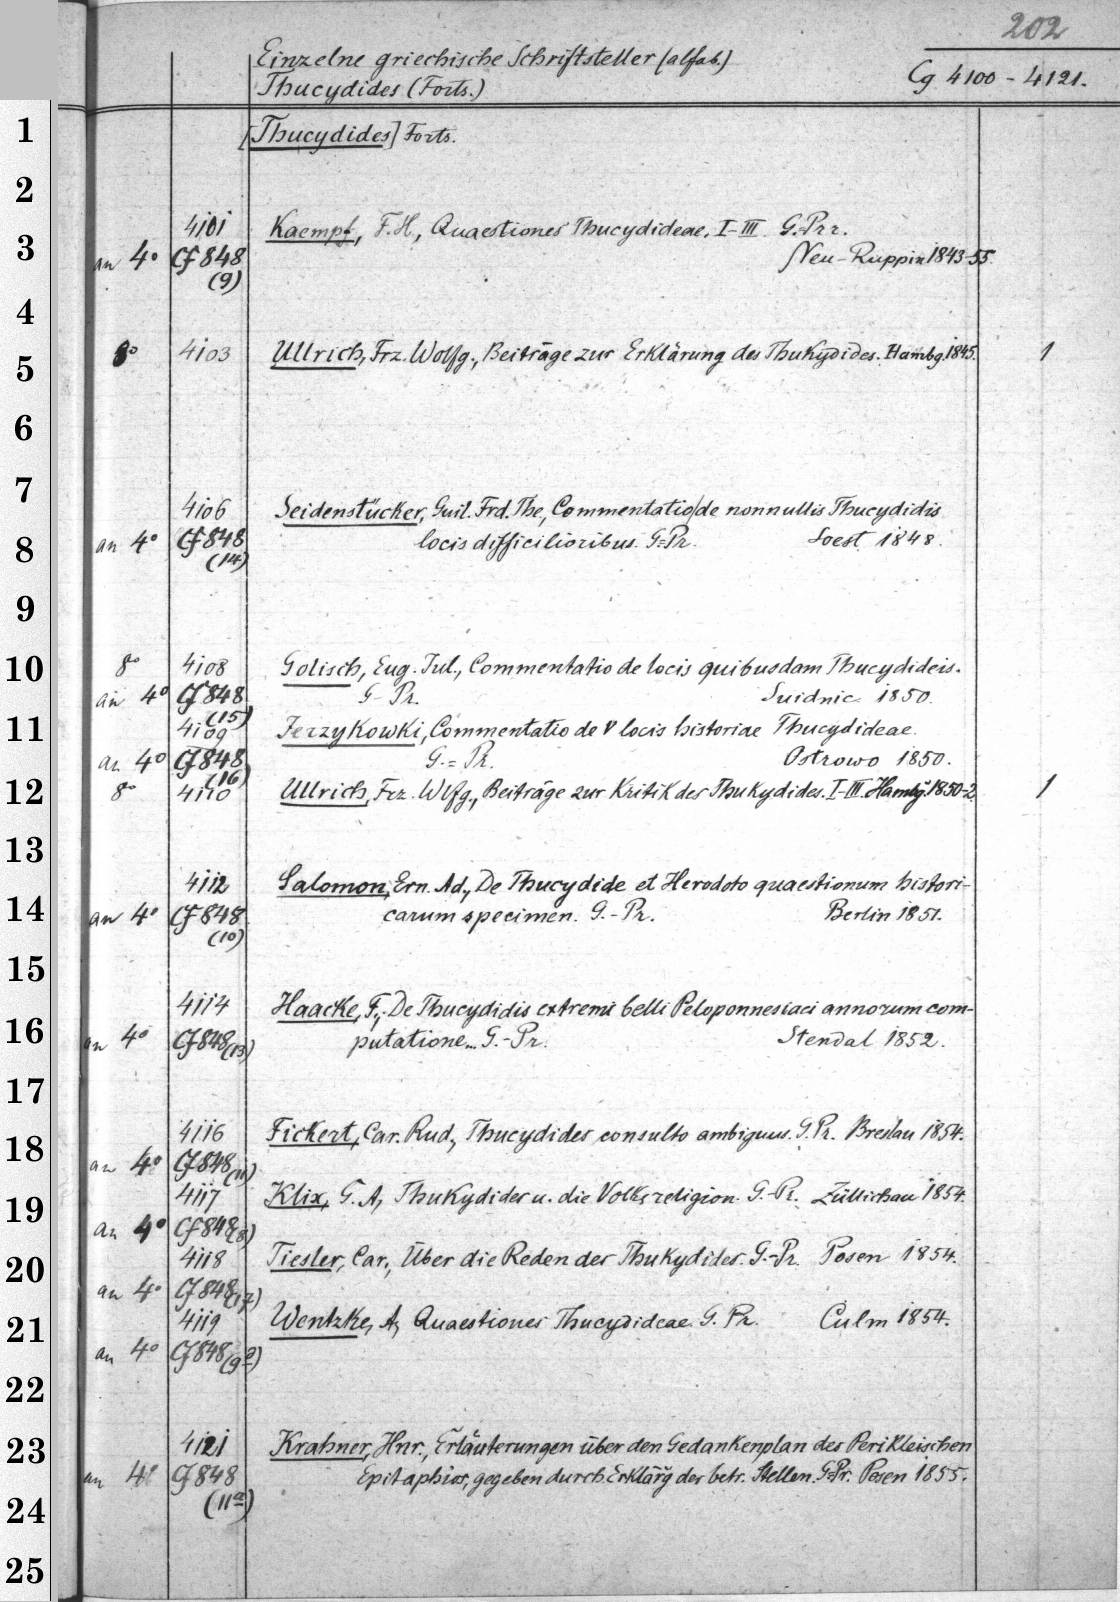 202
Einzelne griechische Schriftsteller (alfab.)
Thucydides (Forts.)
Cg 4100 - 4121.
1
[Thucydides] Forts.
2
4101 Kaempf, F. H., Quaestiones Thucydideae. I-III G.-Prr.
3
an 4° Cf 848 Neu-Ruppin 1843-55
(9)
4
8° 4103 Ullrich, Frz. Wolfg., Beiträge zur Erklärung des Thukydides. Hambg. 1845. 1
5
6
7
4106 Seidenstücker, Guil. Frd. The, Commentatio/de nonnullis Thucydidis
8
an 4° Cf 848 locis difficilioribus. G=Pr. Soest 1848.
(14)
9
10
8° 4108 Golisch, Eug. Jul., Commentatio de locis quibusdam Thucydideis.
an 4° Cf 848 G-Pr. Suidnic 1850.
(15)
11
4109 Jerzykowki, Commentatio de V locis historiae Thucydideae.
an 4° Cf 848 G.=Pr. Ostrowo 1850.
(16)
12
8° 4110 Ullrich, Frz. Wlfg., Beiträge zur Kritik des Thukydides. I-III. Hambg. 1850-2 1
13
4112 Salomon, Ern. Ad., De Thucydide et Herodoto quaestionum histori-
14
an 4° Cf 848 carum specimen. G.-Pr. Berlin 1851.
(10)
15
4114 Haacke, F., De Thucydidis extremi belli Peloponnesiaci annorum com-
16
an 4° Cf 848 (13) putatione... G.-Pr. Stendal 1852.
17
4116 Fickert, Car. Rud., Thucydides consulto ambiguus. G. Pr. Breslau 1854.
18
an 4° Cf 848 (11)
4117 Klix, G. A., Thukydides u. die Volksreligion. G.-Pr. Züllichau 1854.
19
an 4° Cf 848 (8)
4118 Tiesler, Car., Über die Reden des Thukydides. G.-Pr. Posen 1854.
20
an 4° Cf 848 (17)
4119 Wentzke, A., Quaestiones Thucydideae. G. Pr. Culm 1854.
21
an 4° Cf 848 (9a)
22
4121 Krahner, Hnr., Erläuterungen über den Gedankenplan des Perikleischen
23
an 4° Cf 848 Epitaphios, gegeben durch Erklärg der betr. Stellen. G=Pr. Posen 1855.
(11a)
24
25